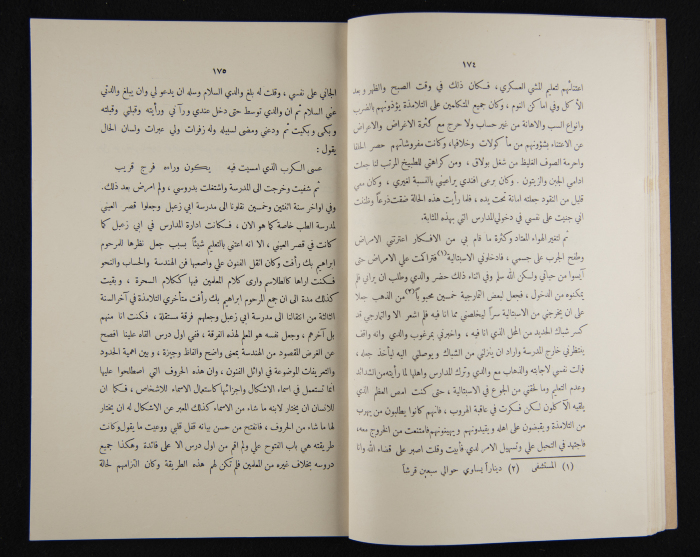 ١٧٤
اعتنائهم لتعليم المشي العسكري ، فكان ذلك في وقت الصبح والظهر وبعد
الأكل وفي اماكن النوم ، وكان جميع المتكلمين على التلامذة يؤذونهم بالضرب
وانواع السب والاهانة من غير حساب ولا حرج مع كثرة الاغراض والاعراض
عن الاعتناء بشؤونهم من مأكولات وخلافها، وكانت مفروشاتهم حصر الحلفا
واحرمة الصوف الغليظ من شغل بولاق ، ومن كراهتي للطبيخ المرتب لنا جعلت
ادامي الجبن والزيتون . وكان برعى افندي يراعيني بالنسبة لغيري ، وكان معي
قليل من النقود جعلته امانة تحت يده ، فلما رأيت هذه الحالة ضقت ذرعاً وظننت
اني جنيت على نفسي في دخولي المدارس التي بهذه المثابة.
ثم لتغير الهواء المعتاد وكثرة ما قام بي من الافكار اعترتني الامراض
وطفح الجرب على جسمي ، فادخلوني الاسبتالية(١) فتراكمت علي الامراض حتى
آيسوا من حياتي ولكن الله سلم وفي اثناء ذلك حضر والدي وطلب ان يراني فلم
يمكنوه من الدخول ، فجعل لبعض التمارجية خمسين محبوباً(٢) من الذهب جعلاً
على ان يخرجني من الاسبتالية سراً ليخلصني مما انا فيه فلم اشعر الا والتمارجي قد
كسر شباك الحديد من المحل الذي انا فيه ، واخبرني بمرغوب والدي وانه واقف
ينتظرني خارج المدرسة واراد ان ينزلني من الشباك ويوصلني اليه ليأخذ جعله ،
فمالت نفسي لاجابته والذهاب مع والدي وترك المدارس واهلها لما رأيته من الشدائد
وعدم التعليم وما لحقني من الجوع في الاسبتالية ، حتى كنت امص العظم الذي
يلقيه الآكلون لكن فكرت في عاقبة الهروب ، فانهم كانوا يطلبون من يهرب
من التلامذة ويقبضون على اهله ويقيدونهم ويهينونهم فامتنعت من الخروج معه،
فاجتهد في التحيل علي وتسهيل الامر لدي فأبيت وقلت اصبر على قضاء الله وانا
(١) المستشفى (٢) ديناراً يساوي حوالي سبعين قرشاً
١٧٥
الجاني على نفسي ، وقلت له بلغ والدي السلام وسله ان يدعو لي وان يبلغ والدتي
عني السلام ثم ان والدي توسط حتى دخل عندي ورآني ورأيته وقبلني وقبلته
وبكى وبكيت ثم ودعني ومضى لسبيله وله زفرات ولي عبرات ولسان الحال
يقول :
عسى الكرب الذي امسيت فيه يكون وراءه فرج قريب
ثم شفيت وخرجت الى المدرسة واشتغلت بدروسي ، ولم امرض بعد ذلك.
وفي اواخر سنة اثنتين وخمسين نقلونا الى مدرسة ابي زعبل وجعلوا قصر العيني
لمدرسة الطب خاصة كما هو الان ، فكانت ادارة المدارس في ابي زعبل كما
كانت في قصر العيني ، الا انه اعتنى بالتعليم شيئاً بسبب جعل نظرها للمرحوم
ابراهيم بك رأفت وكان اثقل الفنون علي واصعبها فن الهندسة والحساب والنحو
فكنت اراها كالطلاسم وارى كلام المعلمين فيها ككلام السحرة ، وبقيت
كذلك مدة الى ان جمع المرحوم ابراهيم بك رأفت متأخري التلامذة في آخر السنة
الثالثة من انتقالنا الى مدرسة ابي زعبل وجعلهم فرقة مستقلة ، فكنت انا منهم
بل آخرهم ، وجعل نفسه هو المعلم لهذه الفرقة ، ففي اول درس القاه علينا افصح
عن الغرض المقصود من الهندسة بمعنى واضح والفاظ وجيزة ، وبين اهمية الحدود
والتعريفات الموضوعة في اوائل الفنون ، وان هذه الحروف التي اصطلحوا عليها
انما تستعمل في اسماء الاشكال واجزائها كاستعمال الاسماء للاشخاص ، فكما ان
للانسان ان يختار لابنه ما شاء من الاسماء كذلك المعبر عن الاشكال له ان يختار
لها ما شاء من الحروف ، فانفتح من حسن بيانه قفل قلبي ووعيت ما يقول وكانت
طريقته هي باب الفتوح علي ولم اقم من اول درس الا على فائدة وهكذا جميع
دروسه بخلاف غيره من المعلمين فلم تكن لهم هذه الطريقة وكان التزامهم لحالة